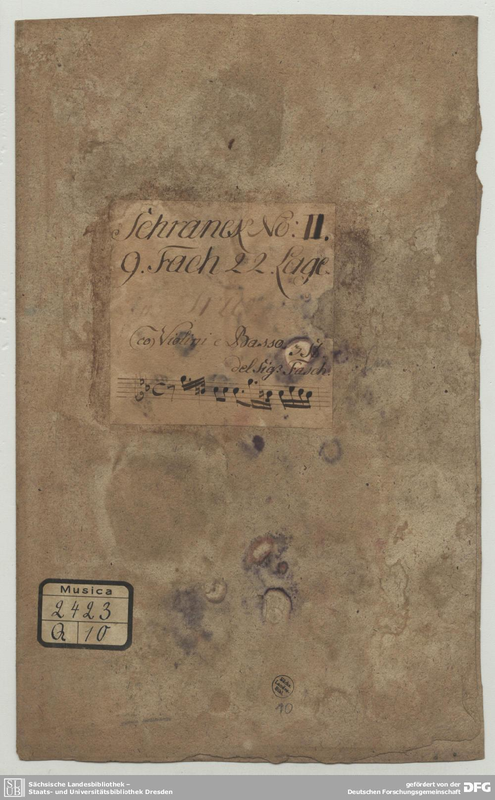 Schranck No: II.
9. Fach 22. Lage.
Co Violini e Basso
del Sig: Fasch.
Musica
2423
Q 10
10
Sächsische Landesbibliothek –
Staats- und Universitätsbibliothek Dresden
gefördert von der
Deutschen Forschungsgemeinschaft DFG